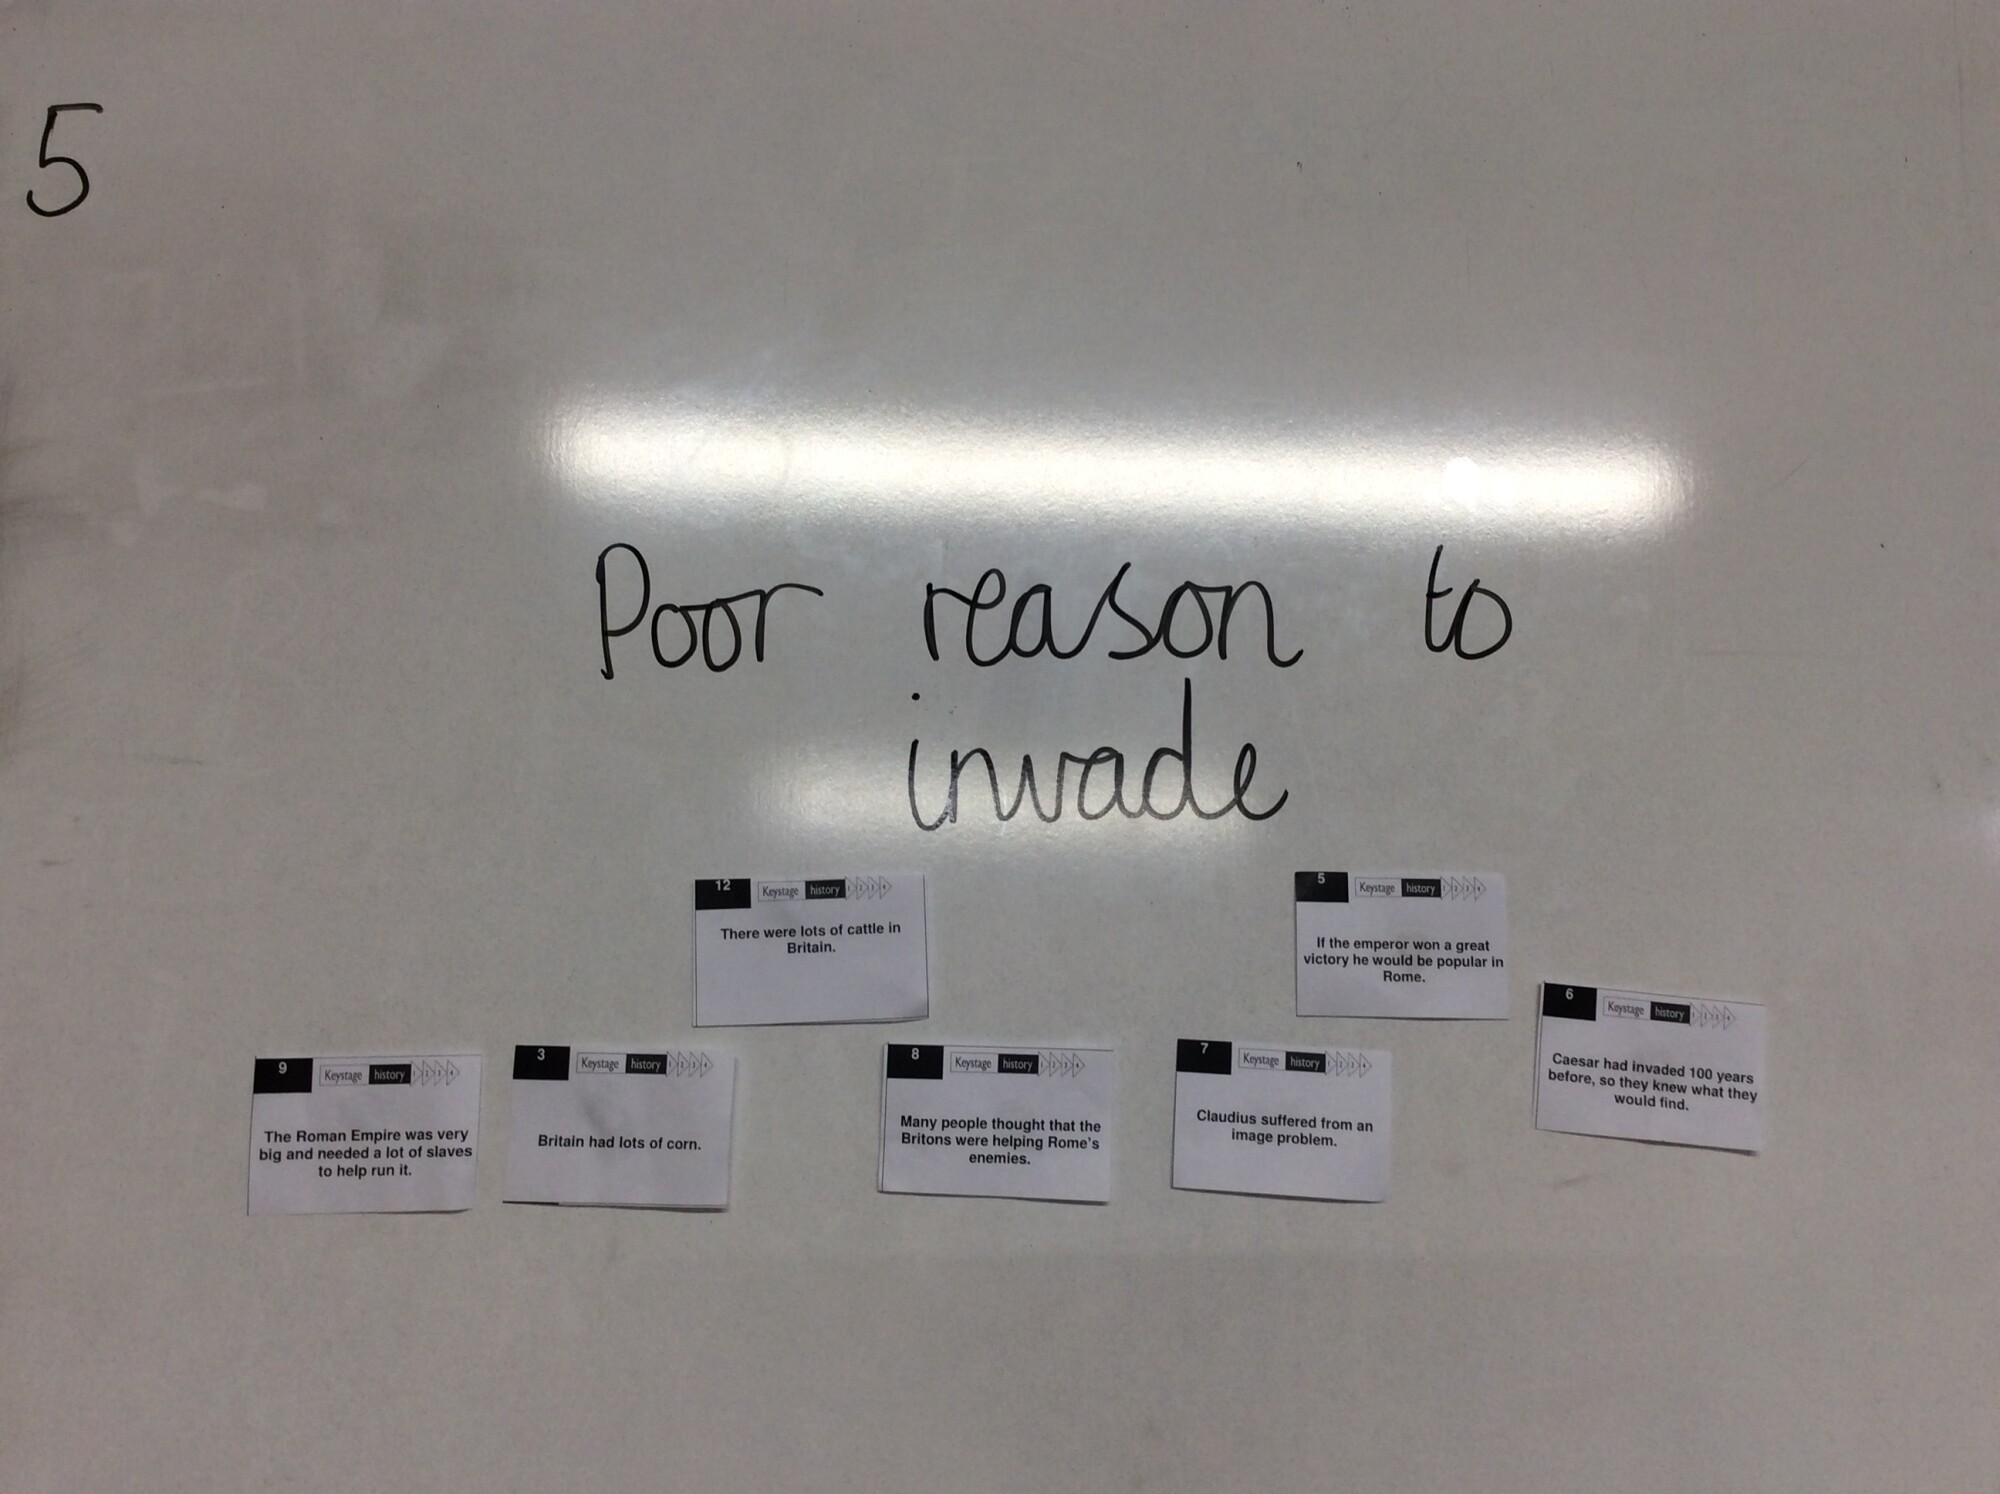 5
Poor reason to
invade
12
Keystage history 1 2 3 4
There were lots of cattle in
Britain.
5
Keystage history 1 2 3 4
If the emperor won a great
victory he would be popular in
Rome.
6
Keystage history 1 2 3 4
Caesar had invaded 100 years
before, so they knew what they
would find.
9
Keystage history 1 2 3 4
The Roman Empire was very
big and needed a lot of slaves
to help run it.
3
Keystage history 1 2 3 4
Britain had lots of corn.
8
Keystage history 1 2 3 4
Many people thought that the
Britons were helping Rome's
enemies.
7
Keystage history 1 2 3 4
Claudius suffered from an
image problem.